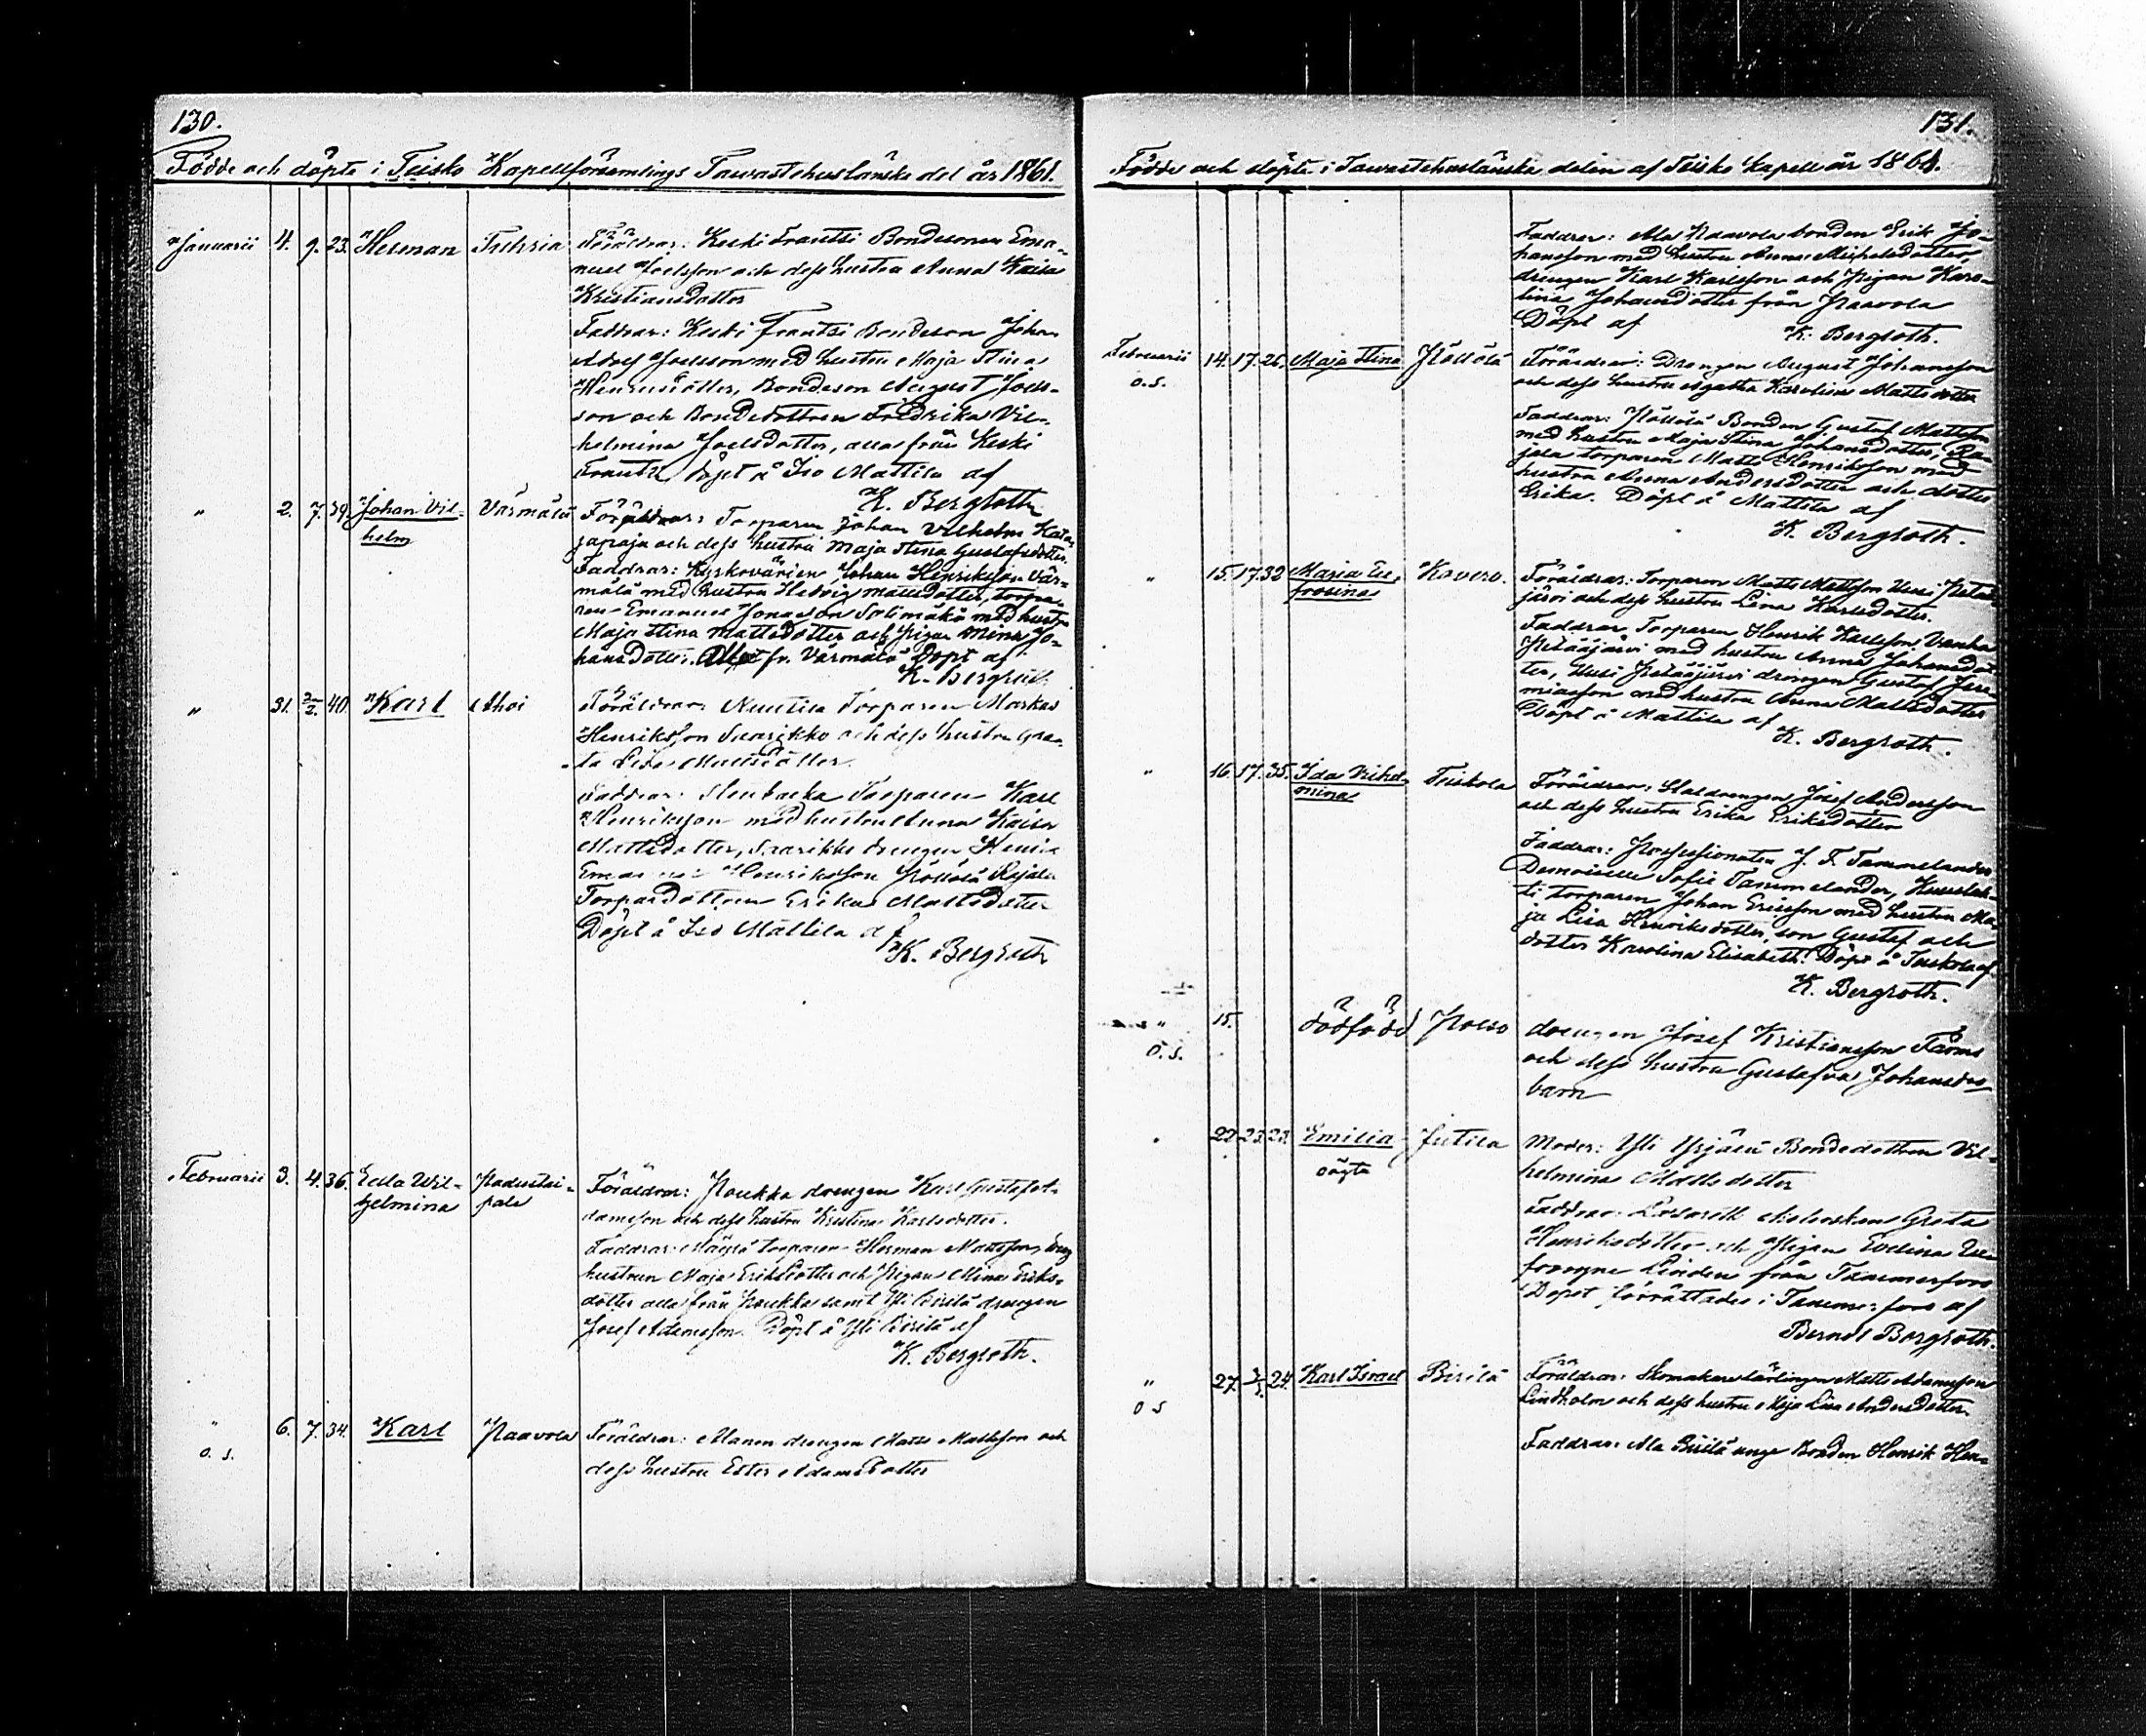 130.
Födde och döpte i Teisko Kapellförsamlings Tawastehuslänske del år 1861.
Januarii 4. 9. 23. Herman Terhria Föräldrar: Keski Frantsi Bondesonen Ema-
nuel Joelsson och dess hustru Anna Kaisa
Kristiansdotter
Faddrar: Keski Frantsi Bondeson Johan
Adolf Joelsson med hustru Maja Stina
Henriksdotter, Bondeson August Joels-
son och Bondedottren Fredrika Vil-
helmina Joelsdotter, alla från Keski
Frantsi Döpt å Iso Mattila af
K. Bergroth
" 2. 7. 39. Johan Vil- Värmälä Föräldrar: Torparen Johan Vilhelm Kata-
helm japaja och dess hustru Maja Stina Gustafsdotter.
Faddrar: Kyrkovärden Johan Henriksson Vär-
mälä med hustru Hedvig Mattsdotter, torpa-
ren Emanuel Jonasson Solimäkä med hustru
Maja Stina Mattsdotter och pigan Mina Jo-
hansdotter. Alla fr. Värmälä Döpt af
K. Bergroth
" 31. 2/2. 40. Karl Ahoi Föräldrar: Nuutila Torparen Markus
Henriksson Saarikko och dess hustru Gre-
ta Lisa Mattsdotter.
Faddrar: Stenbacka Torparen Karl
Henriksson med hustru Anna Kaisa
Mattsdotter, Saarikko drengen Henric
Emanuel Henriksson Pöllölä Rajala
Torpardottren Erika Mattsdotter
Döpt å Iso Mattila af
K. Bergroth
Februarii 3. 4. 36. Edla Wil- Padustai-
helmina pale
Föräldrar: Poukka drengen Karl Gustaf A-
damsson och dess hustru Kristina Karlsdotter.
Faddrar: Mäyrä torparen Herman Mattsson,
hustrun Maja Eriksdotter och Pigan Mina Eriks-
dotter alla från Poukka samt Yli Birilä drengen
Josef Adamsson. Döpt å Yli Birilä af
K. Bergroth.
" 6. 7. 34. Karl Paavola Föräldrar: Alanen drengen Matts Mattsson och
o. s. dess hustru Ester Adamsdotter
131.
Födde och döpte i Tawastehuslänska delen af Teisko Kapell år 1861.
Faddrar: Ala Paavola bonden Erik Jo-
hansson med hustru Anna Michelsdotter,
drengen Karl Karlsson och Pigan Karo-
lina Johansdotter från Paavola
Döpt af K. Bergroth.
Februarii 14. 17. 26. Maja Stina Pöllölä Föräldrar: Drengen August Johansson
o. s. och dess hustru Agatha Karolina Mattsdotter
Faddrar: Pöllölä Bonden Gustaf Mattsson
med hustru Maja Stina Johansdotter, Ra-
jala torparen Matts Henriksson med
hustru Anna Andersdotter och dotter
Erika. Döpt å Mattila af
K. Bergroth.
" 15. 17. 32. Maria Eu- Kovero. Föräldrar: Torparen Matts Mattsson Uusi Petää
frosina järvi och dess hustru Lena Karlsdotter.
Faddrar Torparen Henrik Karlsson Vanha
Petääjärvi med hustru Anna Johansdot-
ter, Uusi Petääjärvi drengen Gustaf Jere-
miasson med hustru Anna Mattsdotter
Döpt å Mattila af
K. Bergroth.
" 16. 17. 35. Ida Vilhel- Teiskola Föräldrar: Staldrengen Josef Andersson
mina och dess hustru Erika Eriksdotter
Faddrar: Possessionaten J. F. Tammelander
Demoiselle Sofie Tammelander, Kuuslah-
ti torparen Johan Ericsson med hustru Ma-
ja Lisa Henriksdotter, son Gustaf och
dotter Karolina Elisabeth. Döpt å Teiskola af
K. Bergroth.
" 15. dödfödd Poeso drengen Josef Kristiansson Tårns
o. s. och dess hustru Gustafva Johansdos
barn
" 22. 23. 23. Emilia Jutila Moder: Yli Yrjälä Bondedottren Vil-
oägta helmina Mattsdotter
Faddrar: Greta
Henriksdotter och Pigan Evelina Eu-
frosyne Linden från Tammerfors
Dopet förrättades i Tammerfors af
Berndt Bergroth.
" 27. 3/3. 24. Karl Israel Birilä Föräldrar: Skomakarelärlingen Matts Adamsson
o s Lindholm och dess hustru Maja Lisa Andersdotter.
Faddrar: Ala Birilä unge Bonden Henrik Hen-